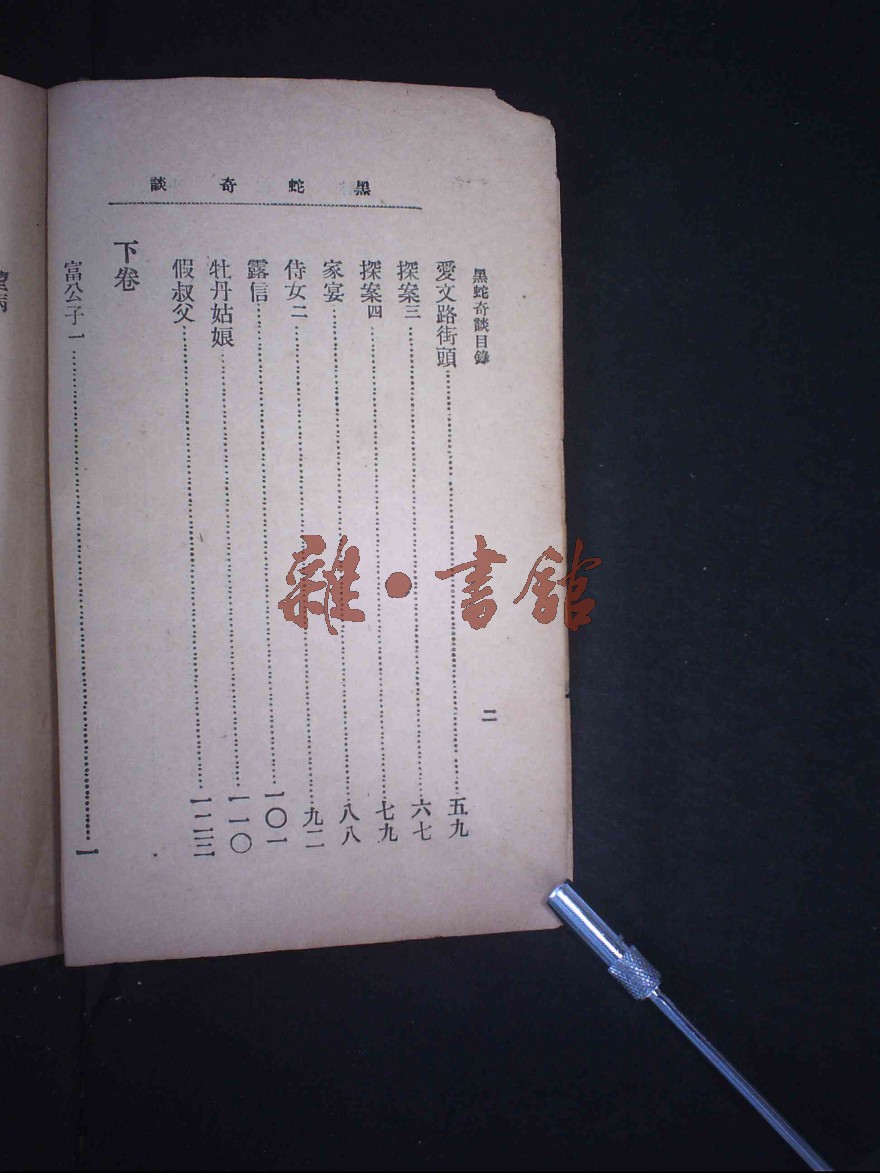 黑蛇奇談
黑蛇奇談目錄
二
愛文路街頭……五九
探案三……六七
探案四……七九
家宴……八八
侍女二……九二
露信……一〇一
牡丹姑娘……一一〇
假叔父……一二三
下卷
富公子一……一
雜·書館